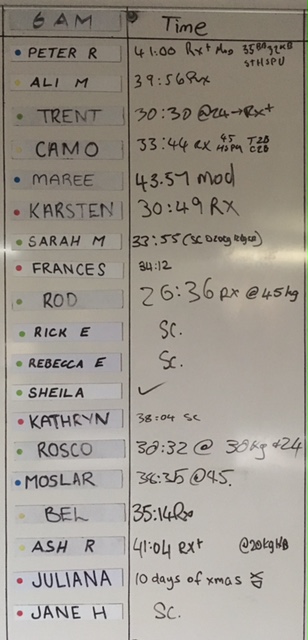 6 AM Time
PETER R 41:00 Rx+
ALI M 39:56 Rx
TRENT 30:30 @24→Rx+
CAMO 33:44 RX 45 T2B
MAREE 43.57 mod
KARSTEN 30:49 RX
SARAH M 33:55 (SC
FRANCES 34:12
ROD 26:36 RX @ 45kg
RICK E SC.
REBECCA E SC.
SHEILA ✓
KATHRYN 38:04 SC
ROSCO 38:32 @ 38kg +24
MOSLAR 36:35 @45.
BEL 35:14 Rx
ASH R 41:04 RX+ @20kg KB
JULIANA 10 days of xmas
JANE H SC.